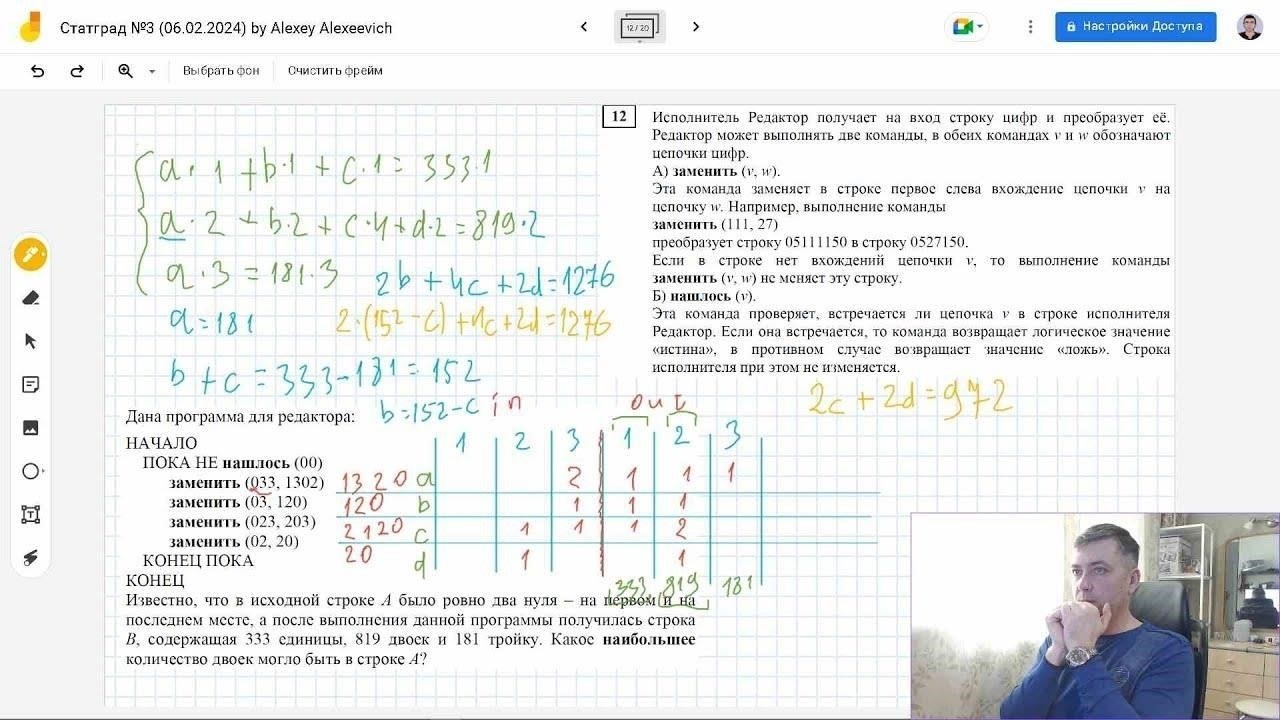 Статград №3 (06.02.2024) by Alexey Alexeevich
12 / 20
Настройки Доступа
Выбрать фон
Очистить фрейм
a·1 + b·1 + c·1 = 333·1
a·2 + b·2 + c·4 + d·2 = 819·2
a·3 = 181·3
2b + 4c + 2d = 1276
a = 181
2·(152 - c) + 4c + 2d = 1276
b + c = 333 - 181 = 152
b = 152 - c
12
Исполнитель Редактор получает на вход строку цифр и преобразует её.
Редактор может выполнять две команды, в обеих командах v и w обозначают
цепочки цифр.
А) заменить (v, w).
Эта команда заменяет в строке первое слева вхождение цепочки v на
цепочку w. Например, выполнение команды
заменить (111, 27)
преобразует строку 05111150 в строку 0527150.
Если в строке нет вхождений цепочки v, то выполнение команды
заменить (v, w) не меняет эту строку.
Б) нашлось (v).
Эта команда проверяет, встречается ли цепочка v в строке исполнителя
Редактор. Если она встречается, то команда возвращает логическое значение
«истина», в противном случае возвращает значение «ложь». Строка
исполнителя при этом не изменяется.
2c + 2d = 972
Дана программа для редактора:
НАЧАЛО
ПОКА НЕ нашлось (00)
заменить (033, 1302)
заменить (03, 120)
заменить (023, 203)
заменить (02, 20)
КОНЕЦ ПОКА
КОНЕЦ
in out
1 2 3 1 2 3
1320 a 2 1 1 1
120 b 1 1 1
2120 c 1 1 1 2
20 d 1 1
333 819 181
Известно, что в исходной строке A было ровно два нуля – на первом и на
последнем месте, а после выполнения данной программы получилась строка
B, содержащая 333 единицы, 819 двоек и 181 тройку. Какое наибольшее
количество двоек могло быть в строке A?